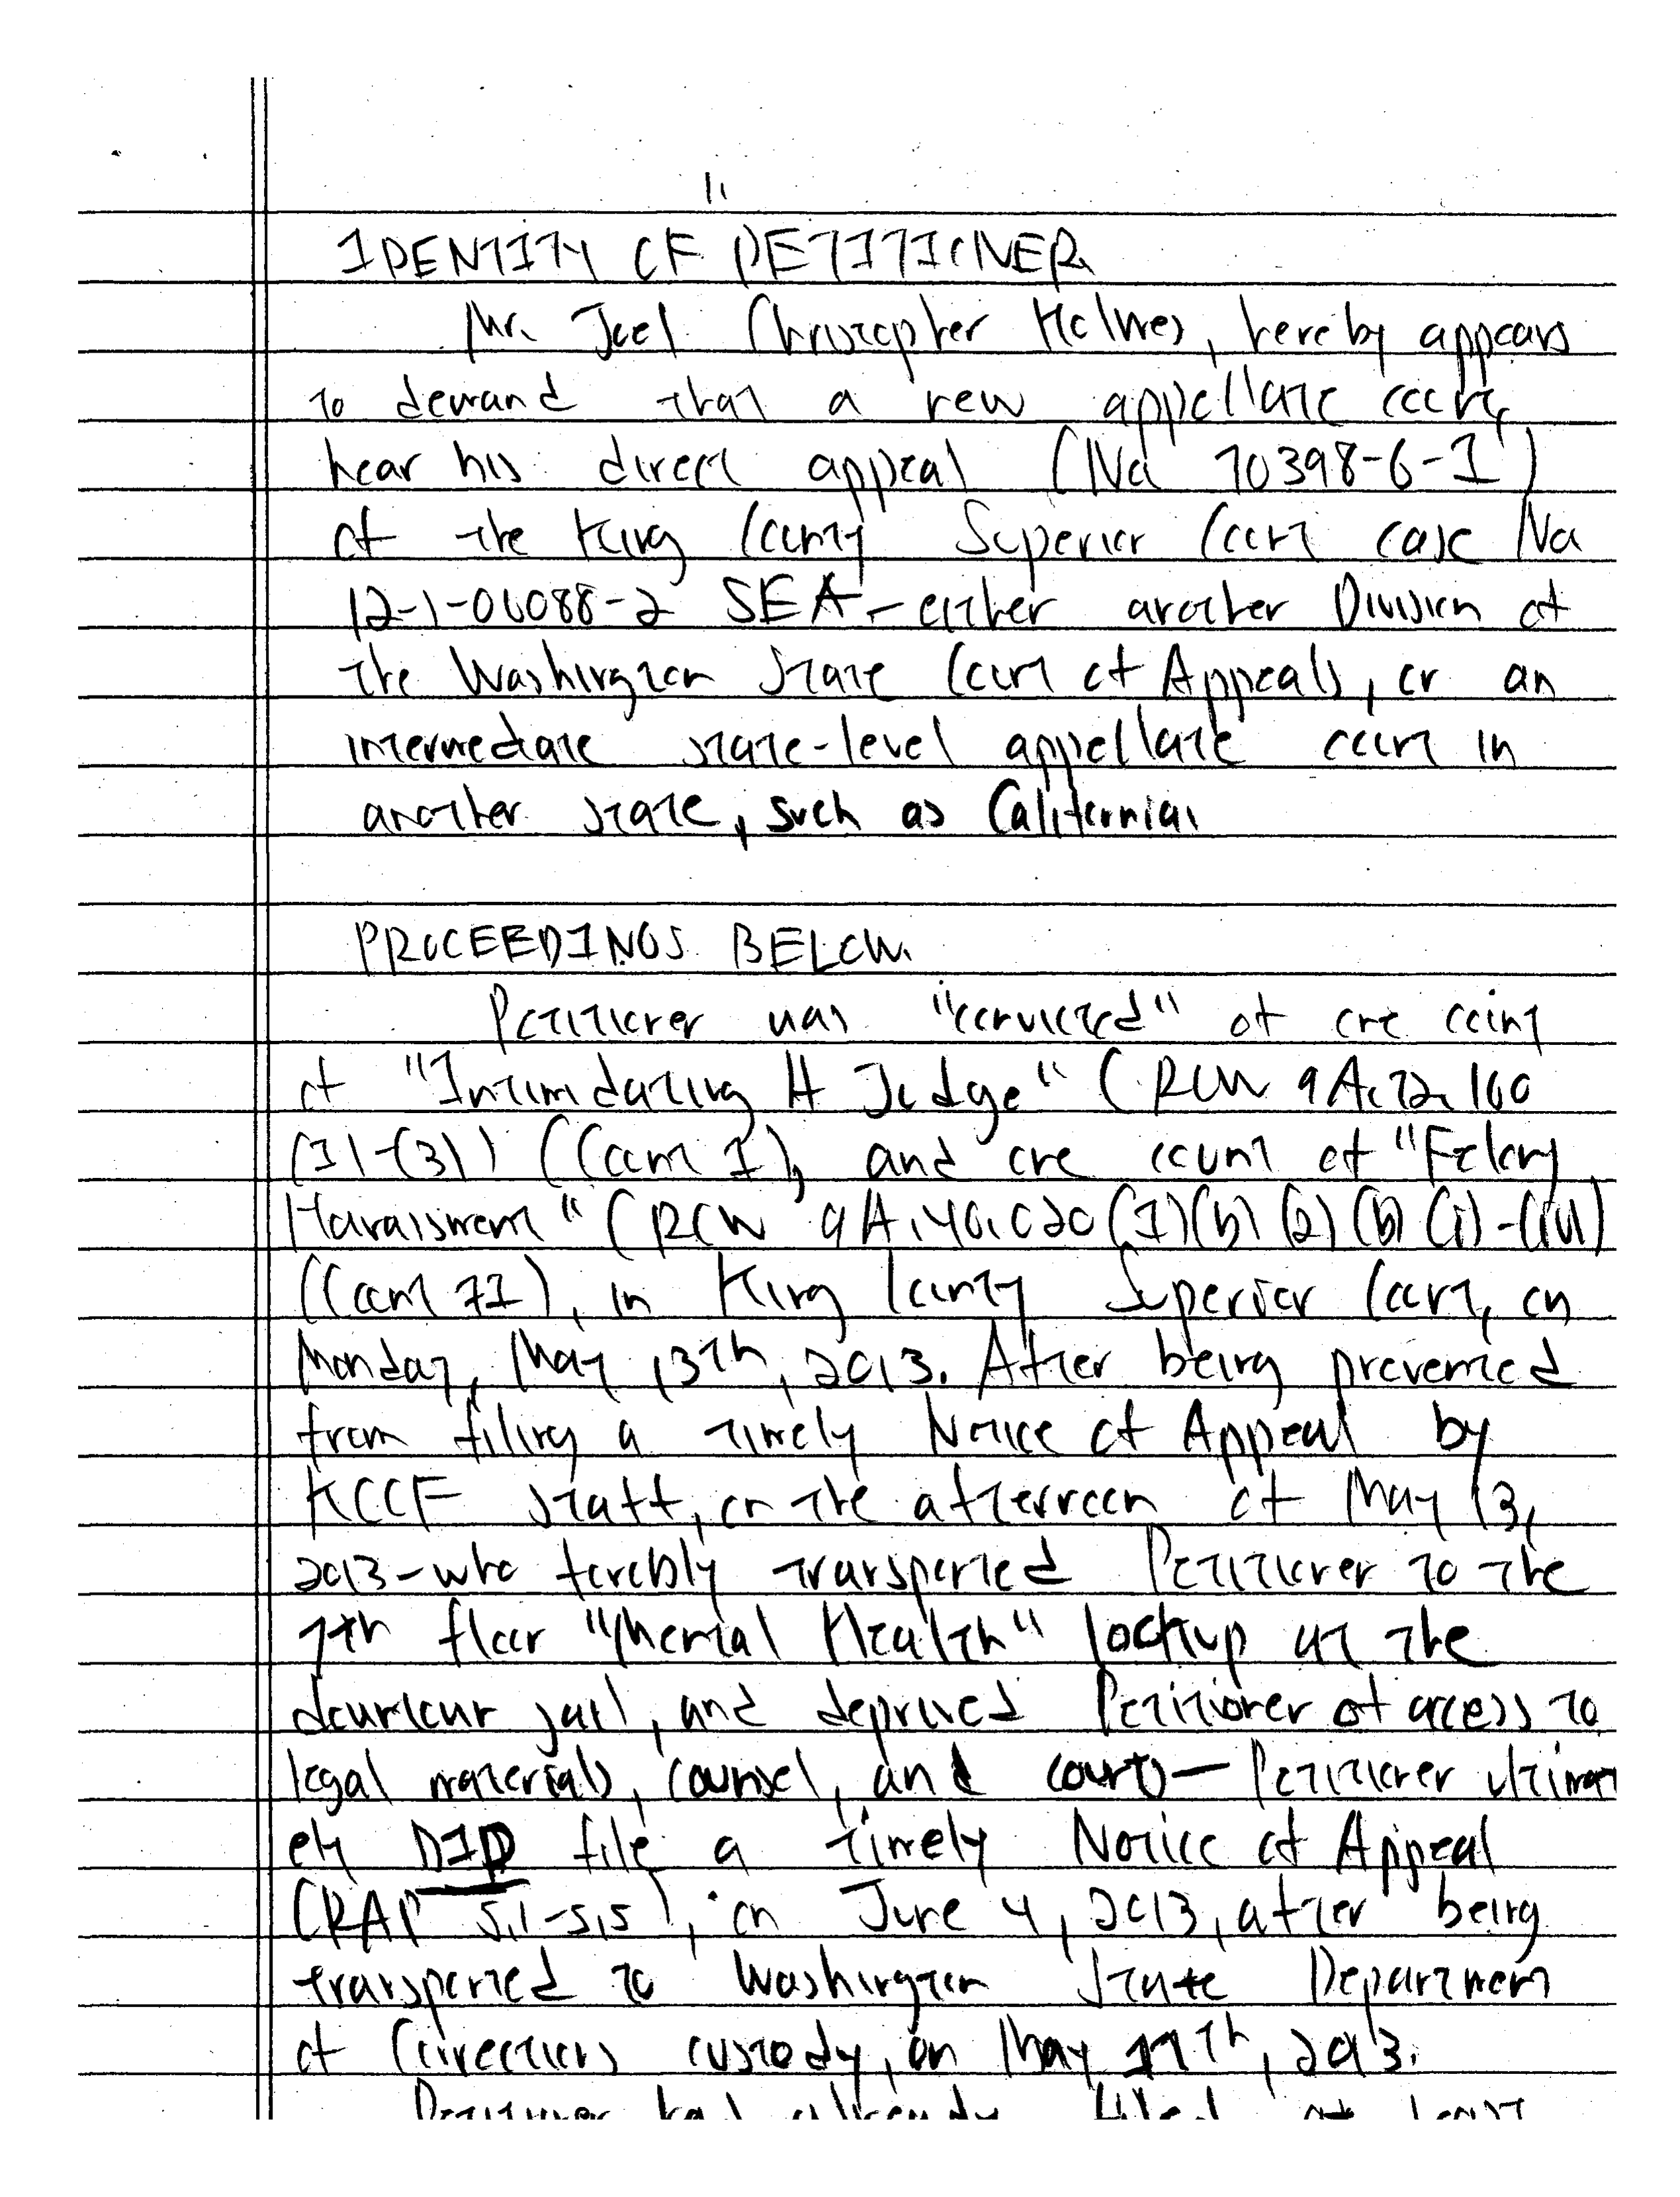 1.
IDENTITY OF PETITIONER.
Mr. Joel Christopher Holmes, hereby appears
to demand that a new appellate court,
hear his direct appeal (No 70398-6-I)
of the King County Superior Court case No
12-1-06088-2 SEA - either another Division of
the Washington State Court of Appeals, or an
intermediate state-level appellate court in
another state, such as California.
PROCEEDINGS BELOW.
Petitioner was "convicted" of one coint
of "Intimidating A Judge" (RCW 9A.72.160
(1)-(3)) (Count I), and one count of "Felony
Harassment" (RCW 9A.46.020(1)(b)(2)(b)(i)-(iii)
(Count II), in King County Superior Court, on
Monday, May 13th, 2013. After being prevented
from filing a timely Notice of Appeal by
KCCF staff, on the afternoon of May 13,
2013-who forcibly transported Petitioner to the
7th floor "Mental Health" lockup at the
downtown jail, and deprived Petitioner of access to
legal materials, counsel, and courts— Petitioner ultimat
ely DID file a timely Notice of Appeal
(RAP 5.1-5.5), on June 4, 2013, after being
transported to Washington State Department
of Corrections custody, on May 17th, 2013.
Petitioner had already filed at least